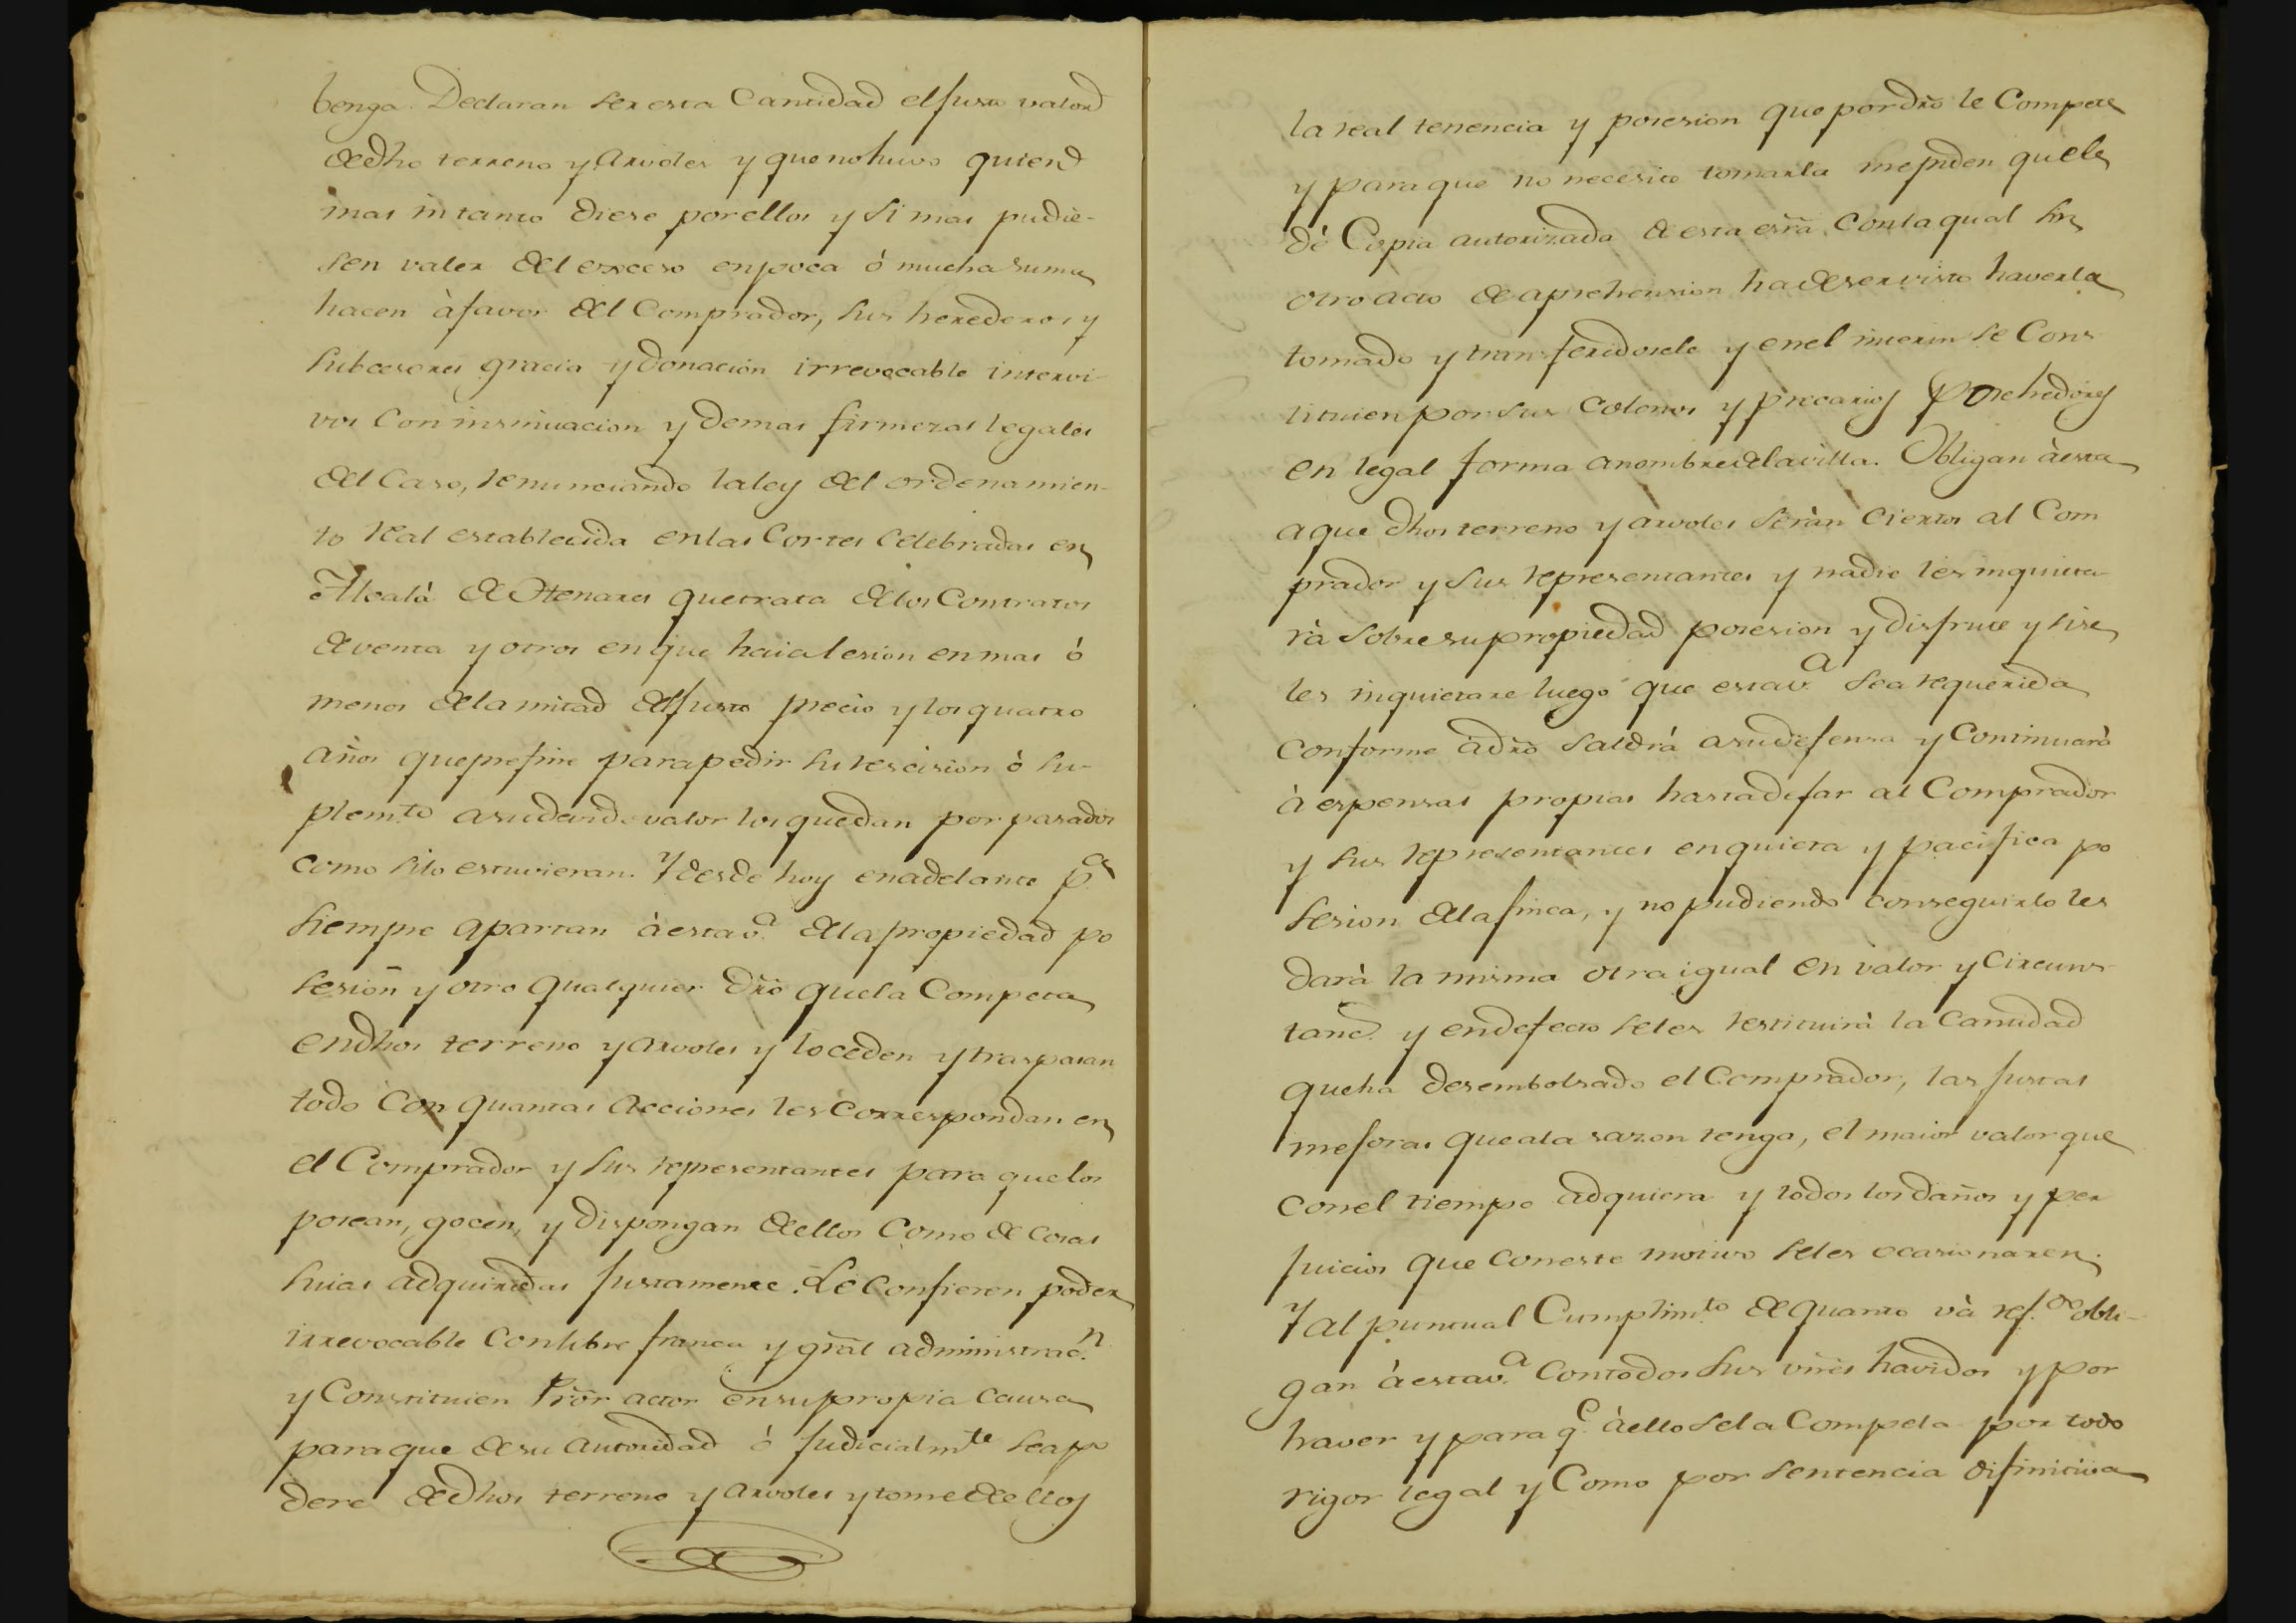 benga. Declaran ser esta Cantidad el justo valor
de dho terreno y Arvoles y que no huvo quien
mas ni tanto diese por ellos y si mas pudie-
sen valer del exceso en poca ó mucha suma
hacen à favor del Comprador, sus herederos y
subcesores gracia y donacion irrevocable intervi-
vos Con insinuacion y demas firmezas legales
del Caso, renunciando la ley del ordenamien-
to Real establecida en las Cortes Celebradas en
Alcalà de Henares que trata de los Contratos
de venta y otros en que haia lesion en mas ó
menos de la mitad del justo precio y los quatro
años que prefine para pedir su rescision ò su-
plem.to a su devido valor los quedan por pasados
como si lo estuvieran. Y desde hoy en adelante p.a
siempre apartan à esta v.a de la propiedad po
sesion y otro qualquier dro que la Competa
en dhos terreno y arvoles y lo ceden y traspasan
todo Con quantas acciones les Correspondan en
el Comprador y sus representantes para que los
posean, gocen, y dispongan de ellos Como de Cosas
suias adquiridas justamente. Le Confieren poder
irrevocable Con libre franca y gral administrac.n
y Constituien Pror actor en su propia causa
para que de su Autoridad ó judicialm.te se apo
dere de dhos terreno y arvoles y tome de ellos
la real tenencia y posesion que por dro le Compete
y para que no necesite tomarla me piden que le
dé Copia autorizada de esta esra. Con la qual sin
otro acto de aprehension ha de ser visto haverla
tomado y transferidosele y en el interin se Cons
tituien por sus Colonos y precarios Posehedores
en legal forma a nombre de la villa. Obligan à esta
a que dhos terreno y arvoles seràn Ciertos al Com
prador y sus representantes y nadie les inquieta-
rà sobre su propiedad posesion y disfrute y si se
les inquietare luego que esta v.a sea requerida
conforme à dro saldrá a su defensa y Continuarà
à espensas propias hasta dejar al Comprador
y sus representantes en quieta y pacifica po
sesion de la finca, y no pudiendo conseguirlo les
darà la misma otra igual en valor y Circuns-
tanc.s y en defecto se les restituirà la Cantidad
que ha desembolsado el Comprador, las justas
mejoras que a la sazon tenga, el maior valor que
con el tiempo adquiera y todos los daños y per
juicios que con este motivo se les ocasionaren.
Y al puntual Cumplim.to de quanto và ref.do obli-
gan à esta v.a Con todos sus vnes havidos y por
haver y para q.e à ello se la Compela por todo
rigor legal y Como por sentencia difinitiva